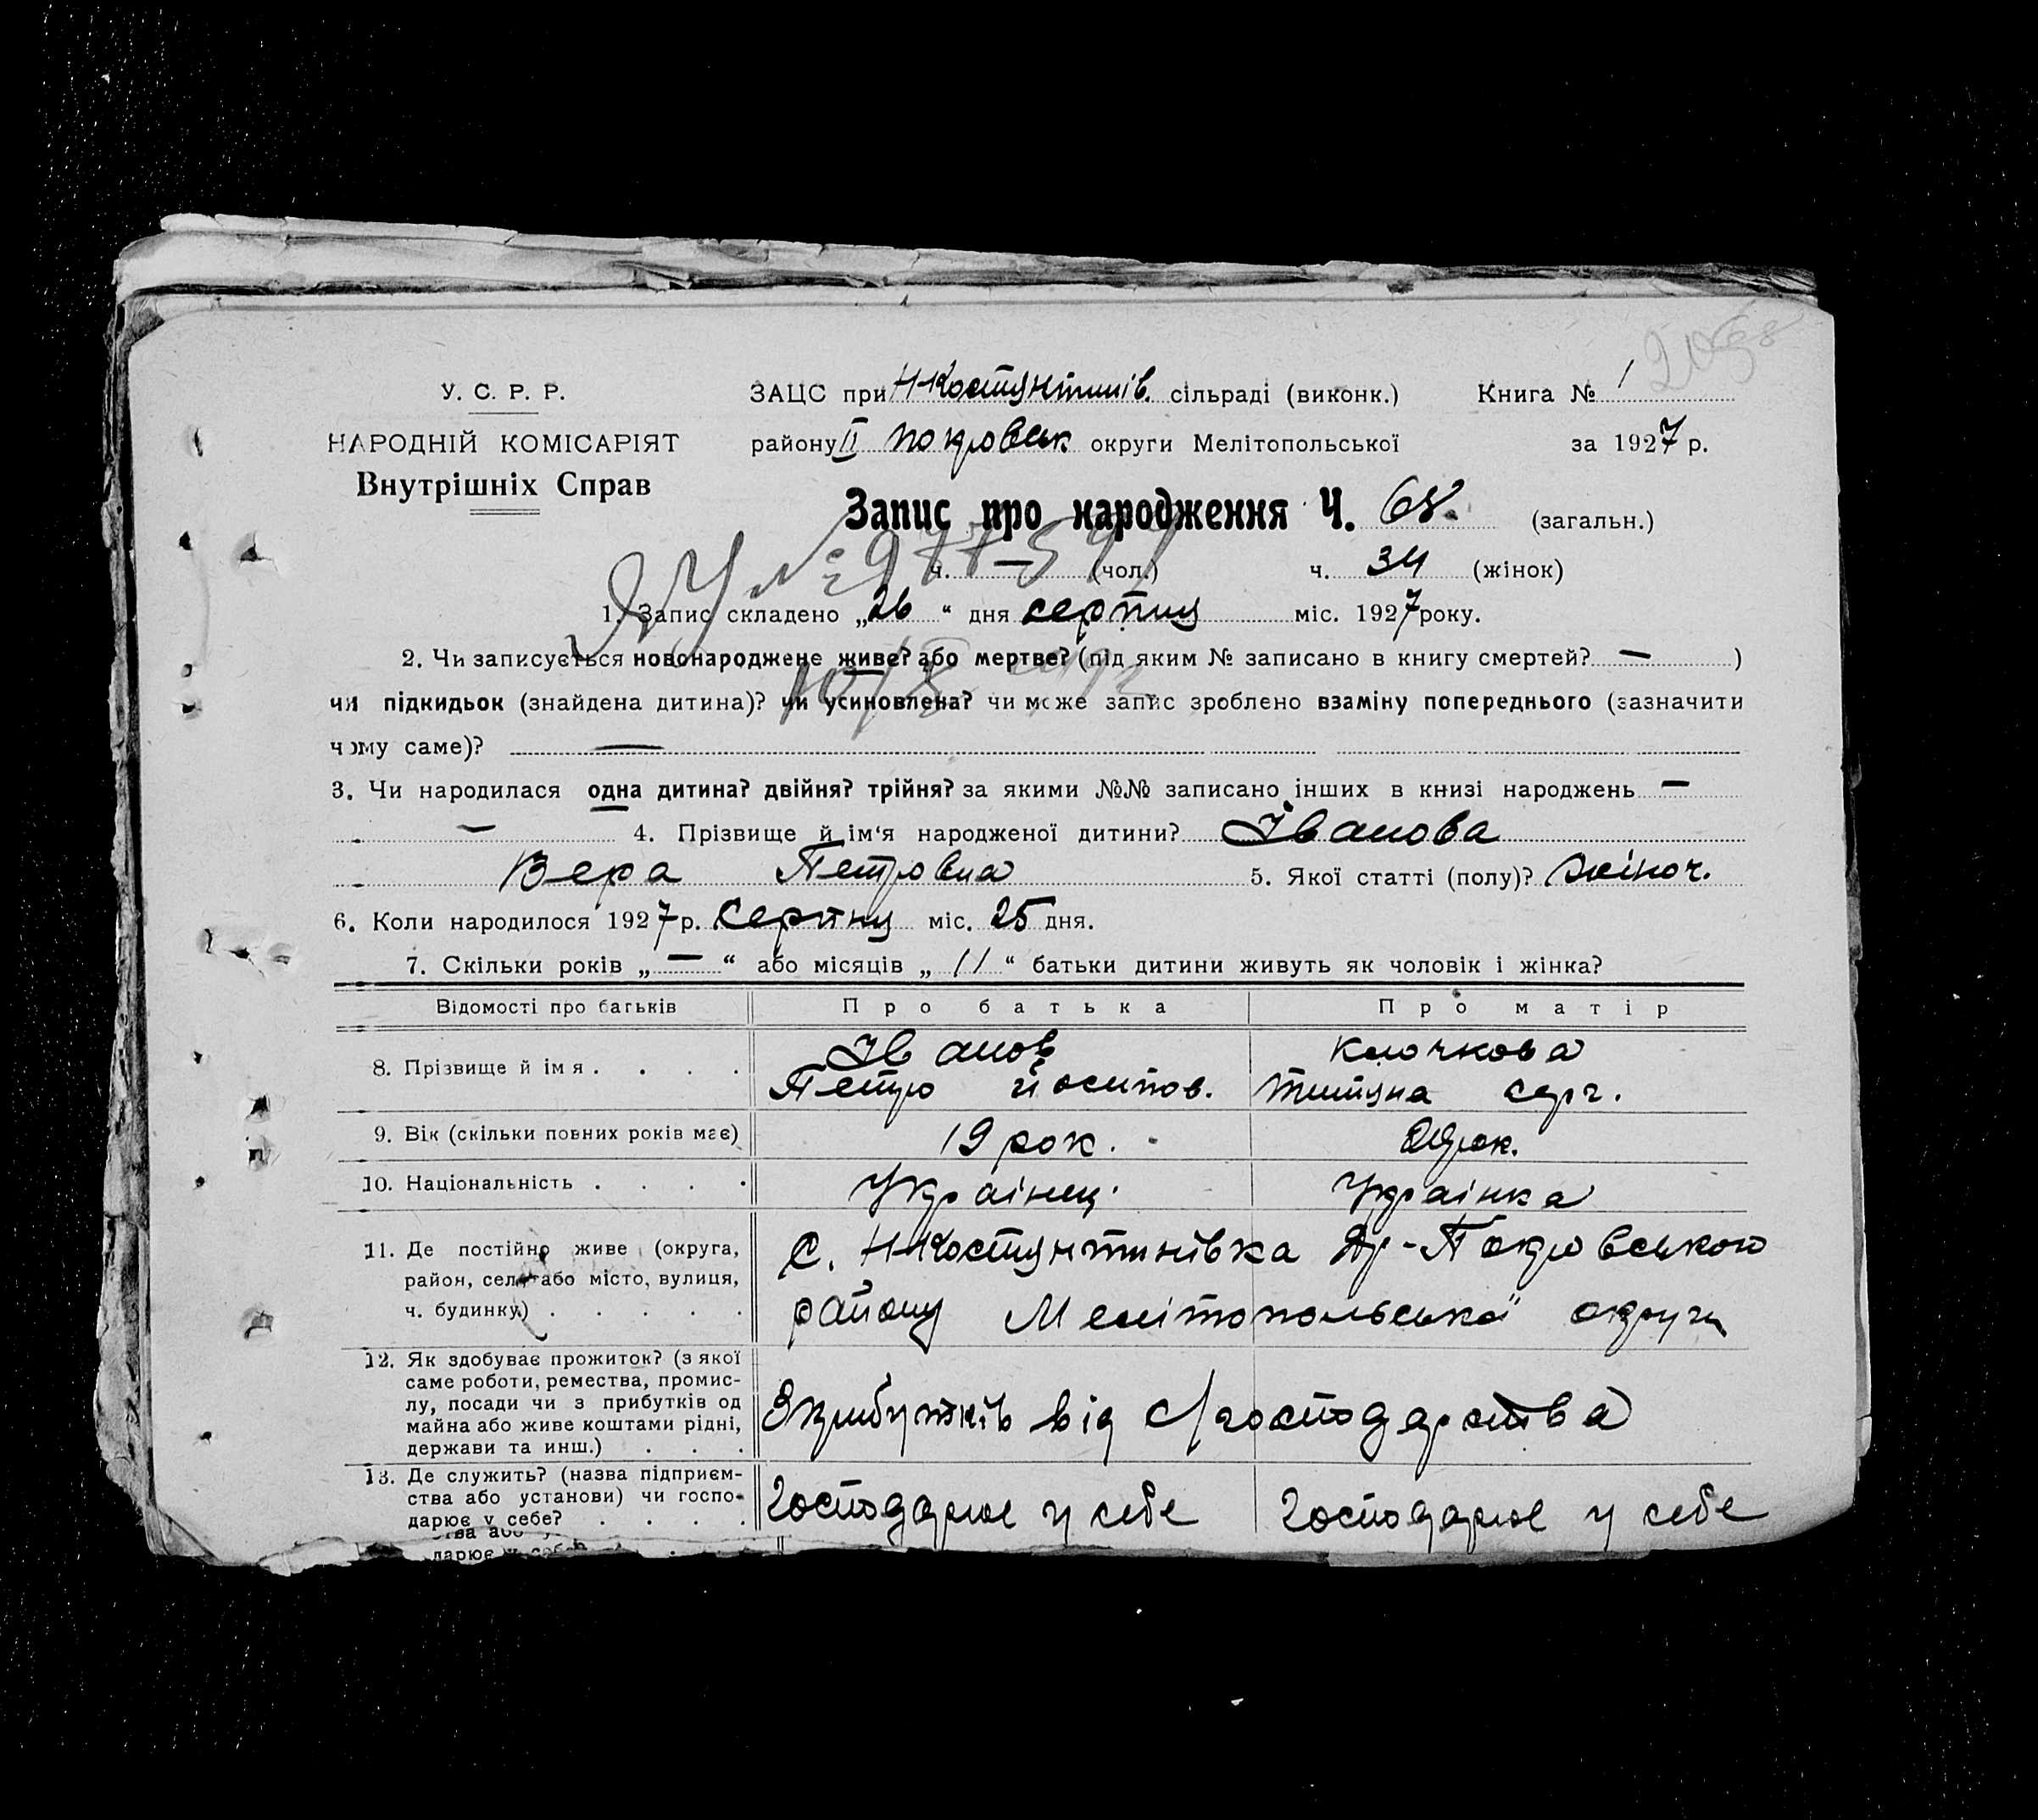 У. С. Р. Р.
НАРОДНІЙ КОМІСАРІЯТ
Внутрішніх Справ
ЗАЦС при Н-Костянтинів. сільраді (виконк.) Книга № 1
району ІІ Покровськ округи Мелітопольської за 1927 р.
Запис про народження Ч. 68. (загальн.)
ч. — (чол.) ч. 34 (жінок)
1. Запис складено „26“ дня серпня міс. 1927 року.
2. Чи записується новонароджене живе? або мертве? (під яким № записано в книгу смертей? — )
чи підкидьок (знайдена дитина)? чи усиновлена? чи може запис зроблено взаміну попереднього (зазначити
чому саме)? —
3. Чи народилася одна дитина? двійня? трійня? за якими №№ записано інших в книзі народжень —
— 4. Прізвище й ім‘я народженої дитини? Іванова
Вера Петровна 5. Якої статті (полу)? жіноч.
6. Коли народилося 1927 р. Серпня міс. 25 дня.
7. Скільки років „—“ або місяців „11“ батьки дитини живуть як чоловік і жінка?
Відомості про батьків Про батька Про матір
8. Прізвище й ім я . . . . Іванов Клочкова
Петро Йосипов. серг.
9. Вік (скільки повних років має) 19 рок.
10. Національність . . . . Українец. Українка
11. Де постійно живе (округа, район, село або місто, вулиця, ч. будинку) . . . . .
с. Н-Костянтинівка -Покровського
району Мелітопольської округи
12. Як здобуває прожиток? (з якої
саме роботи, ремества, промис-
лу, посади чи з прибутків од
майна або живе коштами рідні,
держави та инш.) . . .
З прибутків від с/господарства
13. Де служить? (назва підприєм-
ства або установи) чи госпо-
дарює у себе? . . . .
господарює у себе господарює у себе